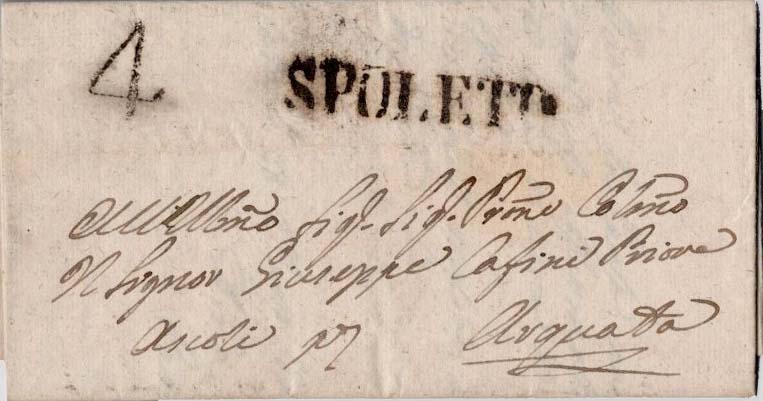 4 SPOLETO
Sig. Sig. Prōne Colmo
Il Signor Giuseppe Cafini Priore
Ascoli pr Arquata